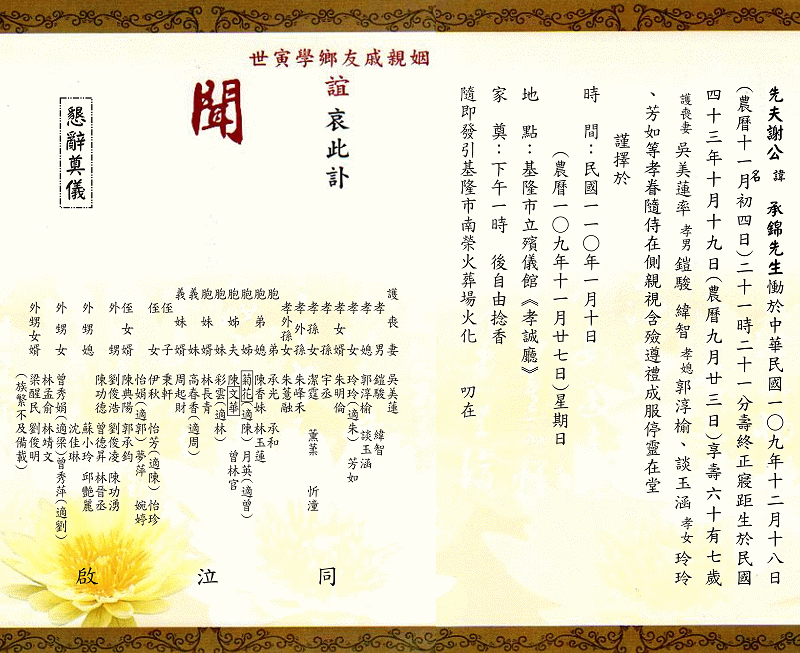 先夫謝公諱名承錦先生慟於中華民國一〇九年十二月十八日
(農曆十一月初四日)二十一時二十一分壽終正寢距生於民國
四十三年十月十九日(農曆九月廿三日)享壽六十有七歲
護喪妻吳美蓮率孝男鎧駿 緯智 孝媳郭淳榆、談玉涵孝女玲玲
、芳如等孝眷隨侍在側親視含殮遵禮成服停靈在堂
謹擇於
時 間：民國一一〇年一月十日
(農曆一〇九年十一月廿七日)星期日
地 點：基隆市立殯儀館《孝誠廳》
家 奠：下午一時 後自由捻香
隨即發引基隆市南榮火葬場火化 叨在
姻親戚友鄉學寅世
誼哀此訃
聞
懇辭奠儀
護喪妻 吳美蓮
孝男 鎧駿 緯智
孝媳 郭淳榆 談玉涵
孝女 玲玲(適朱) 芳如
孝女婿 朱明倫
孝孫 宇丞
孝孫女 潔霆 薰葇 忻潼
孝外孫 朱峰禾
孝外孫女 朱薏融
胞弟 承光 承和
胞弟媳 陳香妹 林玉蓮
胞姊 菊花(適陳) 月英(適曾)
胞姊夫 陳文華 曾林官
胞妹 彩雲(適林)
胞妹婿 林長青
義妹 高春香(適周)
義妹婿 周起財
侄子 秉軒
侄女 伊秋 怡芳(適陳) 怡珍
怡娟(適郭)夢萍 婉婷
侄女婿 陳典陽 郭承鈞
外甥 劉俊浩 劉俊凌 陳功湧
陳功德 曾德昇 林晉丞
外甥媳 蘇小玲 邱艷麗
沈佳琳
外甥女 曾秀娟(適梁)曾秀萍(適劉)
林孟俞 林靖文
外甥女婿 梁醒民 劉俊明
(族繁不及備載)
同 泣 啟